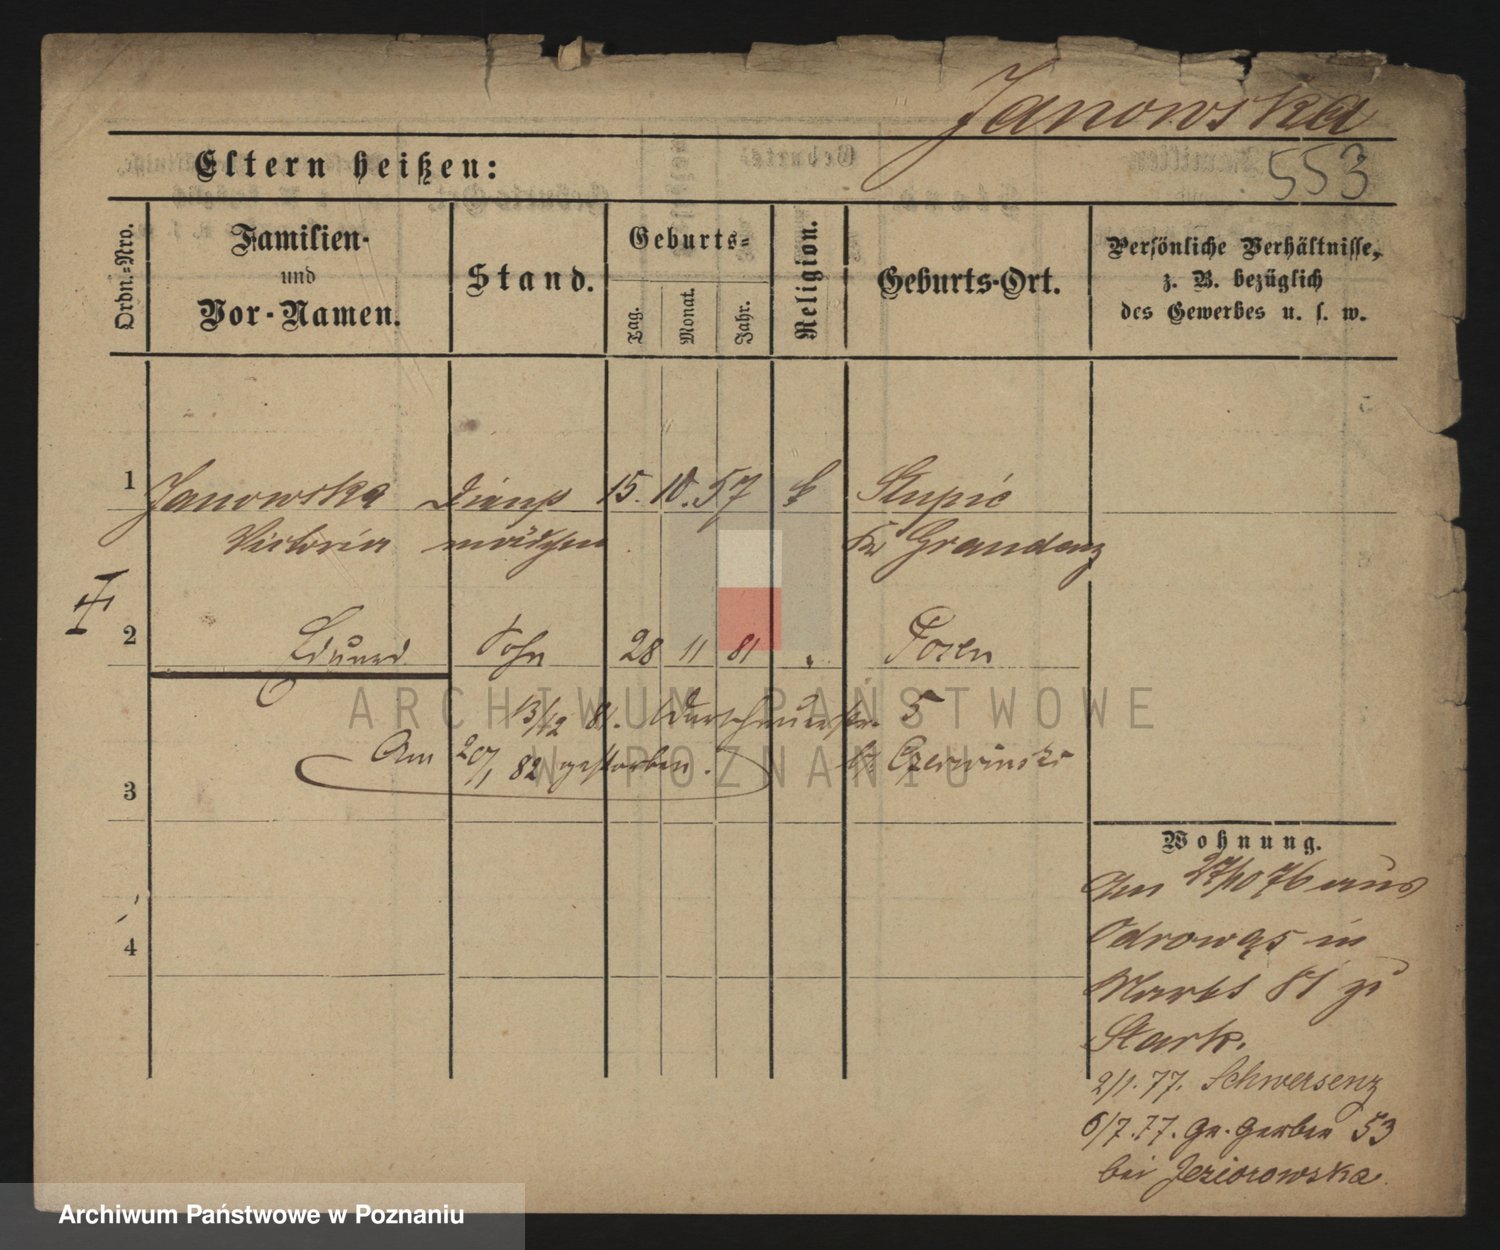 Janowska
553
Eltern heißen:
Ordn.=Nro.
Familien-
und
Vor-Namen.
Stand.
Geburts=
Tag.
Monat.
Jahr.
Religion.
Geburts-Ort.
Persönliche Verhältnisse,
z. B. bezüglich
des Gewerbes u. s. w.
1 Janowska Dienst 15. 10. 57 k Stupic
Victoria mädchen Kr Graudenz
2 Eduard Sohn 28 11 81 " Posen
13/12 81. 5
Am 20/1 82 gestorben. bei Czerwinski
3
4
Wohnung.
Am 27/10 76 aus
Odrowąs in
Markt 81 zu
Stark.
2/1. 77. Schwersenz
6/7. 77. Gr. Gerber 53
bei Jeziorowska.
ARCHIWUM PAŃSTWOWE
W POZNANIU
Archiwum Państwowe w Poznaniu